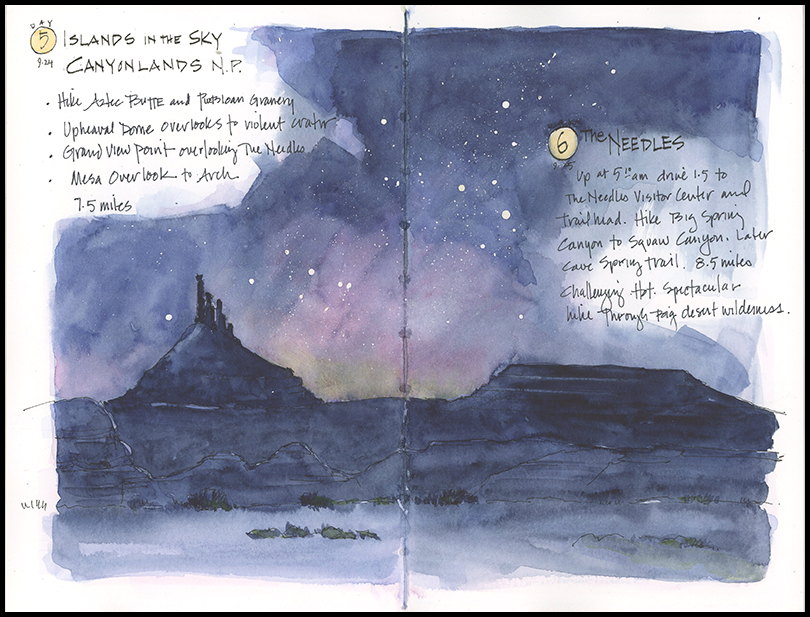 DAY
5
9.24
ISLANDS IN THE SKY
CANYONLANDS N.P.
• Hike Aztec Butte and Granery
• Upheaval Dome Overlooks to violent crater
• Grand View Point overlooking The Needles
• Mesa Overlook to Arch
7.5 miles
6
The NEEDLES
Up at 5:15 am drive 1.5 to
The Needles Visitor Center and
trailhead. Hike Big Spring
Canyon to Squaw Canyon. Later
Cave Spring trail. 8.5 miles
Challenging Hot. Spectacular
hike through big desert wilderness.